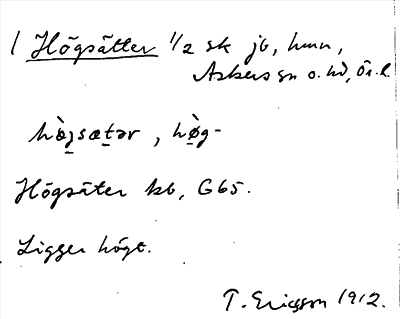 / Högsätter 1/2 sk jb, hmn,
Askers sn o. hd, Ör. l.
hø̀gsætər, hø̀g-
Högsäter kb, G65.
Ligger högt.
T. Ericsson 1912.